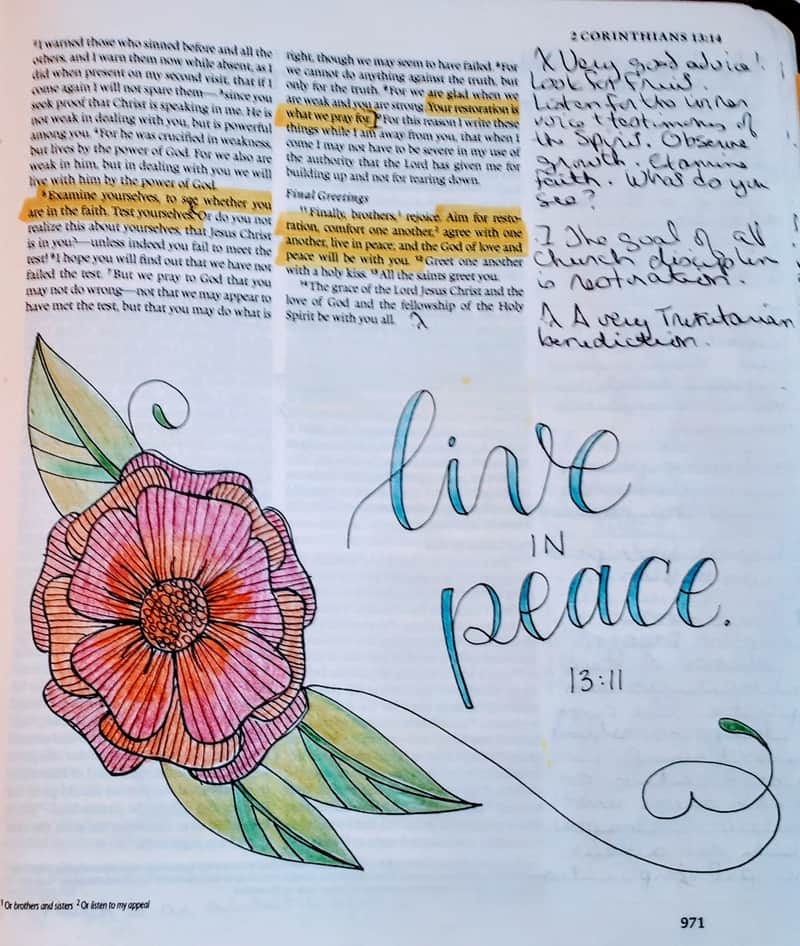 2 CORINTHIANS 13:14
³I warned those who sinned before and all the
others, and I warn them now while absent, as I
did when present on my second visit, that if I
come again I will not spare them—³since you
seek proof that Christ is speaking in me. He is
not weak in dealing with you, but is powerful
among you. ⁴For he was crucified in weakness,
but lives by the power of God. For we also are
weak in him, but in dealing with you we will
live with him by the power of God.
⁵Examine yourselves, to see whether you
are in the faith. Test yourselves. Or do you not
realize this about yourselves, that Jesus Christ
is in you?—unless indeed you fail to meet the
test! ⁶I hope you will find out that we have not
failed the test. ⁷But we pray to God that you
may not do wrong—not that we may appear to
have met the test, but that you may do what is
right, though we may seem to have failed. ⁸For
we cannot do anything against the truth, but
only for the truth. ⁹For we are glad when we
are weak and you are strong. Your restoration is
what we pray for. ¹⁰For this reason I write these
things while I am away from you, that when I
come I may not have to be severe in my use of
the authority that the Lord has given me for
building up and not for tearing down.
Final Greetings
¹¹Finally, brothers,¹ rejoice. Aim for resto-
ration, comfort one another,² agree with one
another, live in peace; and the God of love and
peace will be with you. ¹²Greet one another
with a holy kiss. ¹³All the saints greet you.
¹⁴The grace of the Lord Jesus Christ and the
love of God and the fellowship of the Holy
Spirit be with you all.
Very good advice!
Look for fruit.
Listen for the inner
voice + testimony of
the Spirit. Observe
growth. Examine
faith. What do you
see?
The goal of all
Church discipline
is restoration.
A very Trinitarian
benediction.
live
IN
peace.
13:11
¹Or brothers and sisters ²Or listen to my appeal
971